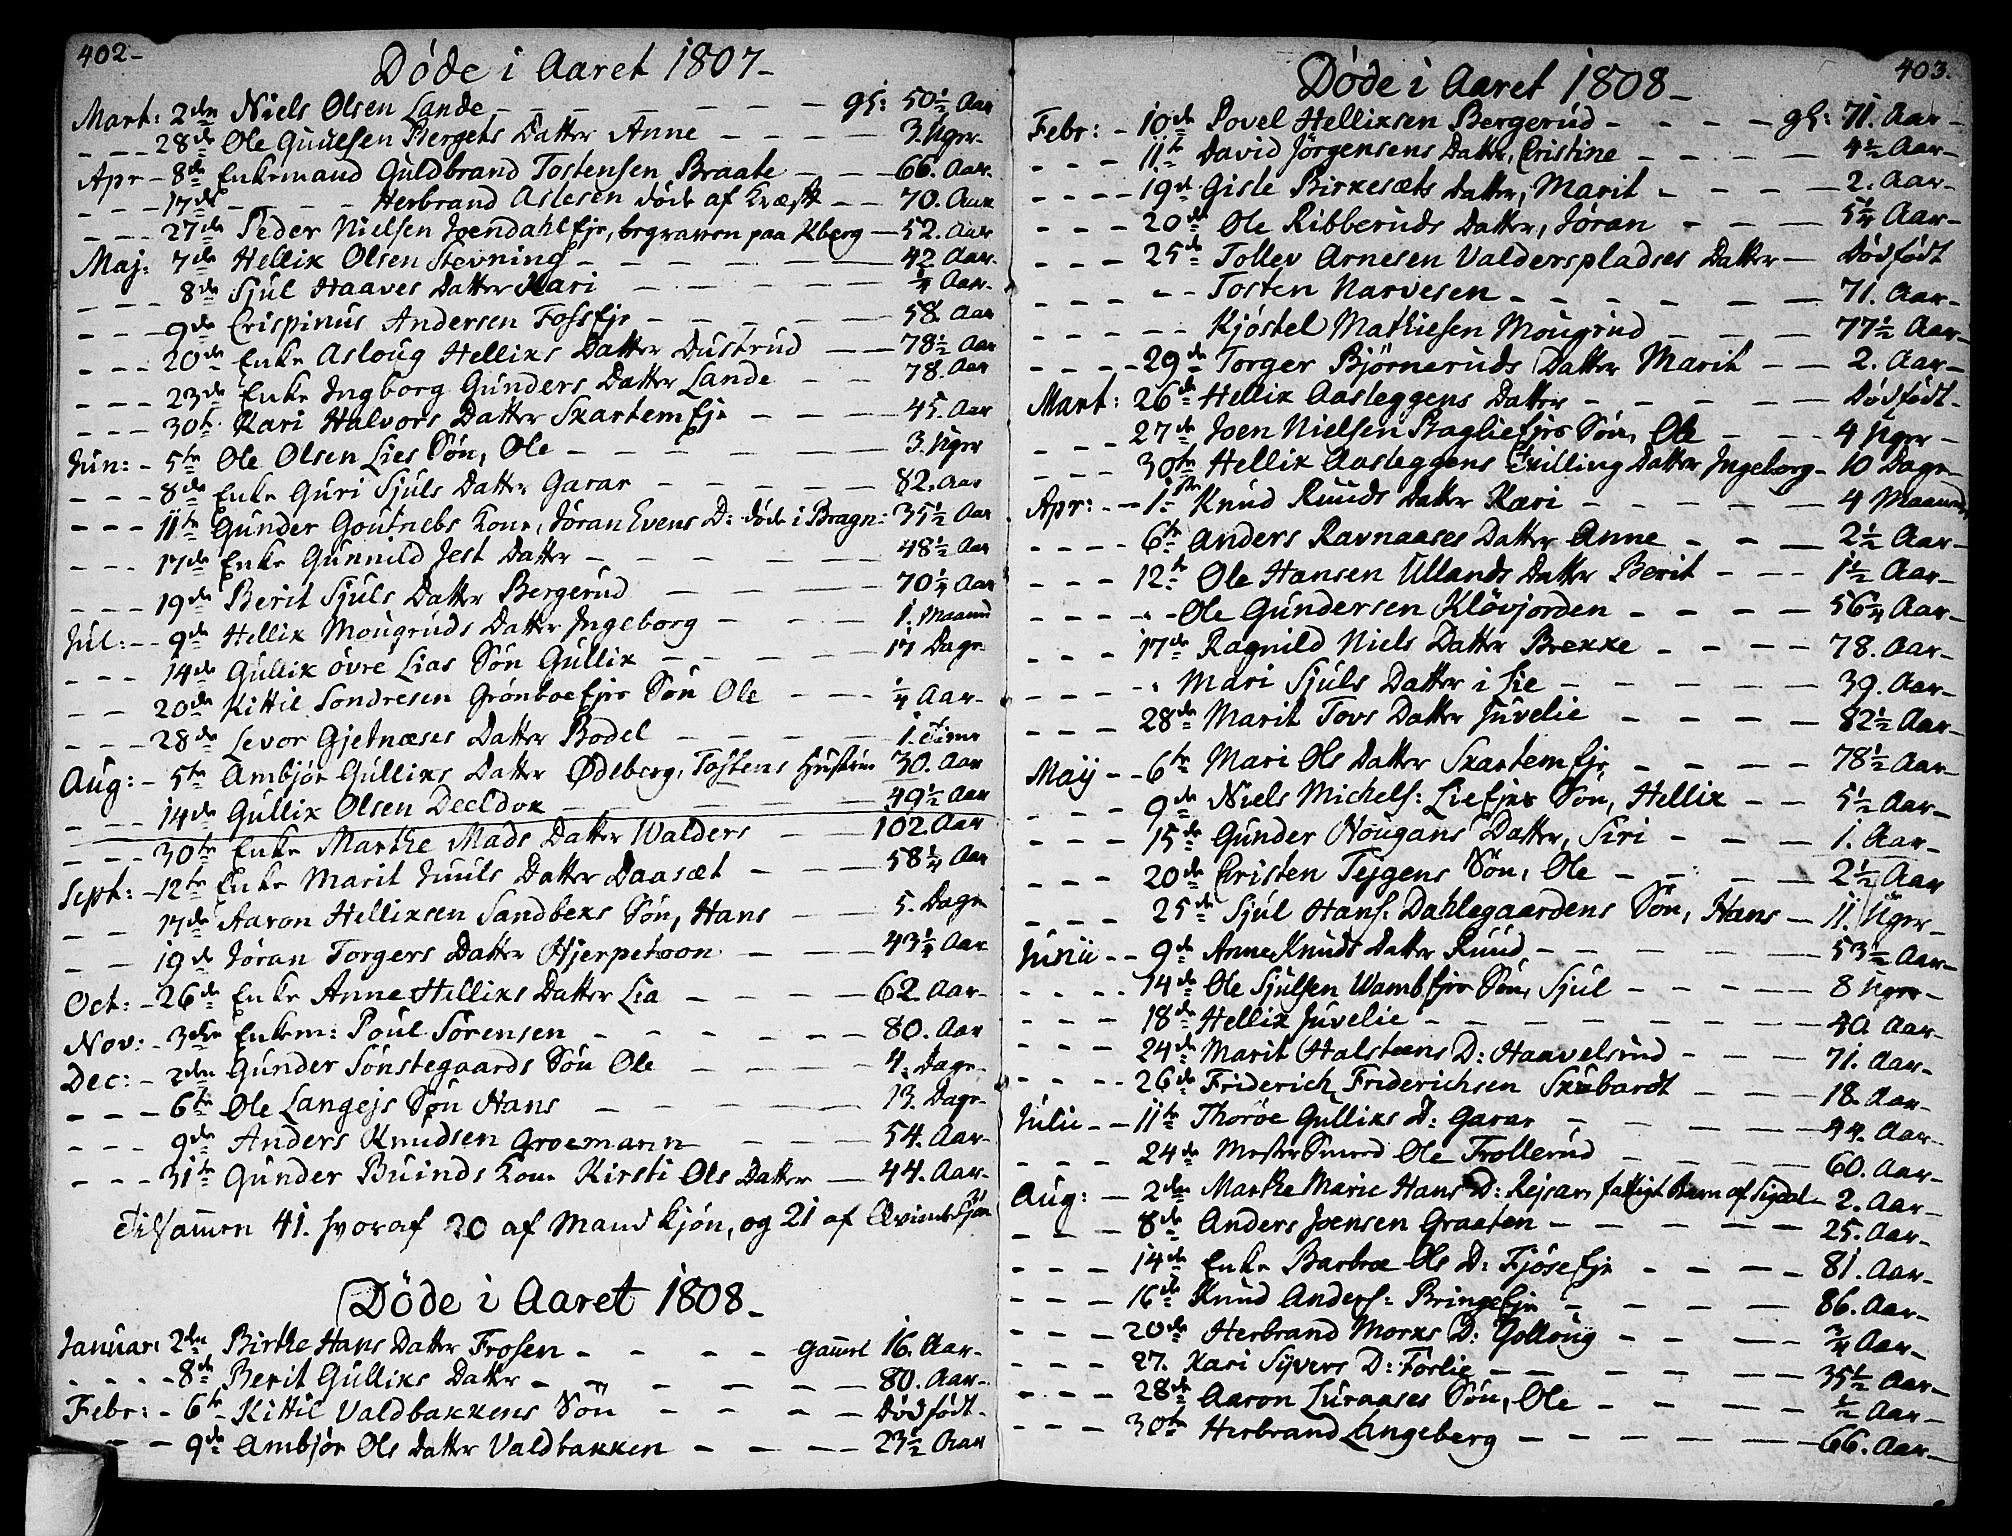 402-
Døde i Aaret 1807-
Mart: 2den Niels Olsen Lande - - - gl: 50½ Aar
- - - 28de Ole Guuelsen Bergets Datter Anne - - - 3. Uger-
Apr - 8de Enkemand Guldbrand Tostensen Braate - - 66. Aar.
- - - 17de - - - Herbrand Aslesen døde af Kræft - - 70. Aar
- - - 27de Peder Nielsen Joendahl Eje, begraven paa Kberg - 52. Aar
Maj: 7de Hellik Olsen Stevning - - - 42 Aar-
- - - 8de Sjul Haaves Datter Kari - - - ¼ Aar-
- - - 9de Crispinus Andersen Foss Eje - - - 58. Aar
- - - 20de Enke Asloug Helliks Datter Dustrud - - 78½ Aar
- - - 23de Enke Ingborg Gunders Datter Lande - - 78. Aar
- - - 30te Kari Halvors Datter Skartem Eje - - - 45. Aar
Jun: - 5te Ole Olsen Lies Søn, Ole - - - 3. Uger
- - - 8de Enke Guri Sjuls Datter Garar - - - 82. Aar
- - - 11te Gunder Goutriebs Kone, Jøran Evens D: døde i Bragn: 35½ Aar
- - - 17de Enke Gunnild Jest Datter - - - 48½ Aar
- - - 19de Berit Sjuls Datter Bergerud - - - 70¼ Aar
Jul: - - 9de Hellik Mougruds Datter Ingeborg - - - 1. Maaned
- - - 14de Gullik øvre Lias Søn Gullik - - - 17 Dage
- - - 20de Kittil Sondresen Grønboe Ejes Søn Ole - - - ¼ Aar-
- - - 28de Levor Gjetnæses Datter Bodel - - - 1. Time
Aug: - 5te Ambjør Gulliks Datter Ødeberg, Tostens Hustrue 30. Aar
- - - 14de Gullik Olsen Deeldok - - - 49½ Aar
- - - 30te Enke Marthe Mads Datter Walders - - 102. Aar
Sept: - 12te Enke Marit Juuls Datter Daasæt - - - 58¼ Aar
- - 17de Aaron Helliksen Sandbeks Søn, Hans - - 5. Dage
- - 19de Jøran Torgers Datter Hjerpetoon - - - 43¼ Aar
Oct: - 26de Enke Anne Helliks Datter Lia - - - - 62. Aar-
Nov: - 3die Enkem: Poul Sørensen - - - 80. Aar
Dec: - 2den Gunder Sønstegaards Søn Ole - - - 4. Dage-
- - - 6te Ole Langejs Søn Hans - - - 13. Dage-
- - - 9de Anders Knudsen Groemann - - - 54. Aar-
- - - 31te Gunder Buinds Kone Kirsti Ols Datter - - 44. Aar-
Tilsamen 41. hvoraf 20 af Mand Kjøn, og 21 af Qvinde Kjøn
Døde i Aaret 1808-
Januar: 2den Birthe Hans Datter Frosen - - - - Gaml 16. Aar-
- - - - 8de Berit Gulliks Datter - - - 80. Aar-
Febr: - 6te - Kittil Valdbakkens Søn - - - - Dødfødt-
- - 9de Ambjør Ols Datter Valdbakken - - - - 23½ Aar
403.
Døde i Aaret 1808-
Febr: - 10de Povel Helliksen Bergerud - - - - gl: 71. Aar-
- - - 11te David Jörgensens Datter, Cristine - - - 4½ Aar-
- - - - 19de Gisle Birkesæts Datter, Marit - - - - 2. Aar-
- - - 20de Ole Ribberuds Datter, Jöran - - - - 5¼ Aar-
- - - 25de Tollev Arnesen Valderspladses Datter - Dødfødt
- - - - - - Tosten Narvesen - - - 71. Aar-
- - - - - - Kjöstel Mathiesen Mougrud - - - 77½ Aar-
- - - - 29de Torger Bjørneruds Datter Marit - - 2. Aar-
Mart: 26de Hellik Aasleggens Datter - - - Dødfødt-
- - - 27de Joen Nielsen Baglie Ejes Søn, Ole - - 4 Uger -
- - - 30te Hellik Aasleggens Tvilling Datter Ingeborg - 10 Dage-
Apr: - - 1ste Knud Ruuds Datter Kari - - - 4 Maaned
- - - - 6te Anders Ravnaases Datter Anne - - - 2½ Aar-
- - - 12te Ole Hansen Ullands Datter Berit - - - 1½ Aar-
- - - - - Ole Gundersen Klövjorden - - - - 56¼ Aar-
- - - 17de Ragnild Niels Datter Brekke - - - - 78. Aar-
- - - - - Mari Sjuls Datter i Lie - - - 39. Aar-
- - - 28de Marit Tovs Datter Juvelie - - - - 82½ Aar-
Maij - - 6te Mari Ols Datter Skartem Eje - - - - 78½ Aar-
- - - 9de Niels Michels: Lie Ejes Søn, Hellik - - 5½ Aar-
- - - 15de Gunder Nougans Datter, Siri - - - 1. Aar-
- - - 20de Cristen Tejgens Søn, Ole - - - 2½ Aar
- - - 25de Sjul Hans: Dahlegaardens Søn, Hans - 11. Uger-
Junii - - 9de Anne Knuds Datter Ruud - - - 53½ Aar-
- - - - 14de Ole Sjulsen Wamb Ejes Søn, Sjul - - - - 8 Uger-
- - - 18de Hellik Juvelie - - - 40 Aar-
- - - 24de Marit Halsteens D: Haavelsrud - - - 71. Aar-
- - - - 26de Friderich Friderichsen Skubardt - - - 18. Aar-
Julii - - 11te Thoröe Gulliks D: Garar - - - 44. Aar-
- - - 24de Mester Smed Ole Trollerud - - - 60. Aar-
Aug: - 2den Marthe Marie Hans D: Rejsar, fattigt Barn af Sigdal - 2. Aar-
- - - 8de Anders Joensen Graaten - - - 25. Aar-
- - - 14de Enke Barbroe Ols D: Fjöse Eje - - - - 81. Aar-
- - - 16de Knud Anders: Bringe Eje - - - - 86. Aar-
- - - 20de Herbrand Morks D: Golloug - - - ¾ Aar-
- - - 27. Kari Syvers D: Förlie - - - 35½ Aar-
- - - 28de Aaron Luraases Søn, Ole - - - ½ Aar-
- - - 30te Herbrand Langeberg - - - 66. Aar-